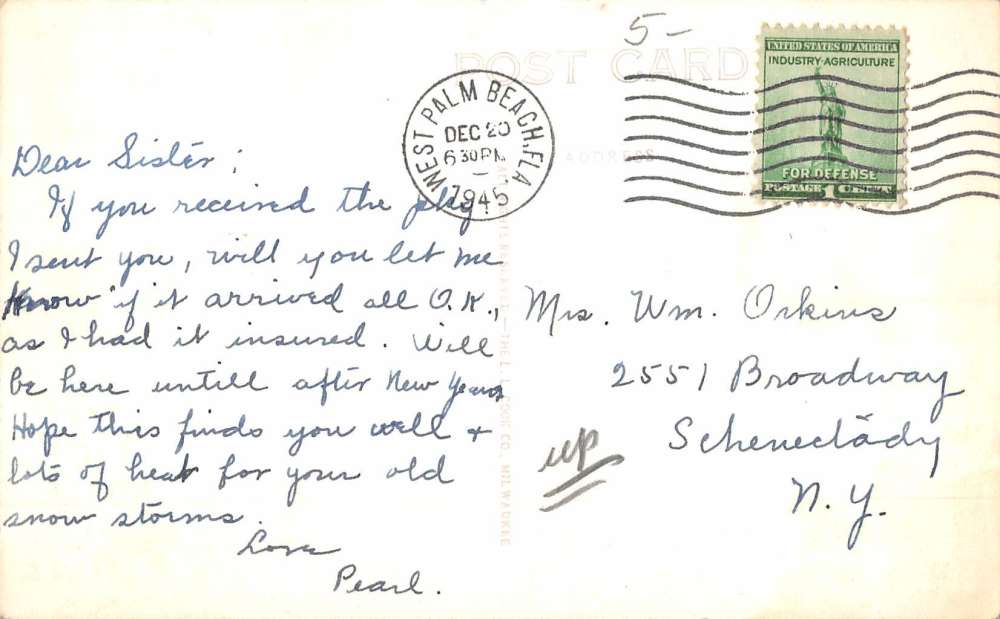 5-
POST CARD
UNITED STATES OF AMERICA
INDUSTRY·AGRICULTURE
FOR DEFENSE
POSTAGE 1 CENT
WEST PALM BEACH, FLA
DEC 20
6 30 PM
1945
ADDRESS
Dear Sister;
If you received the pkg
I sent you, will you let me
know if it arrived all O.K.,
as I had it insured. Will
be here untill after New Years
Hope this finds you well +
lots of heat for your old
snow storms.
Love
Pearl.
Mrs. Wm. Orkins
2551 Broadway
Schenectady
N.Y.
up
THE L. L. COOK CO., MILWAUKEE